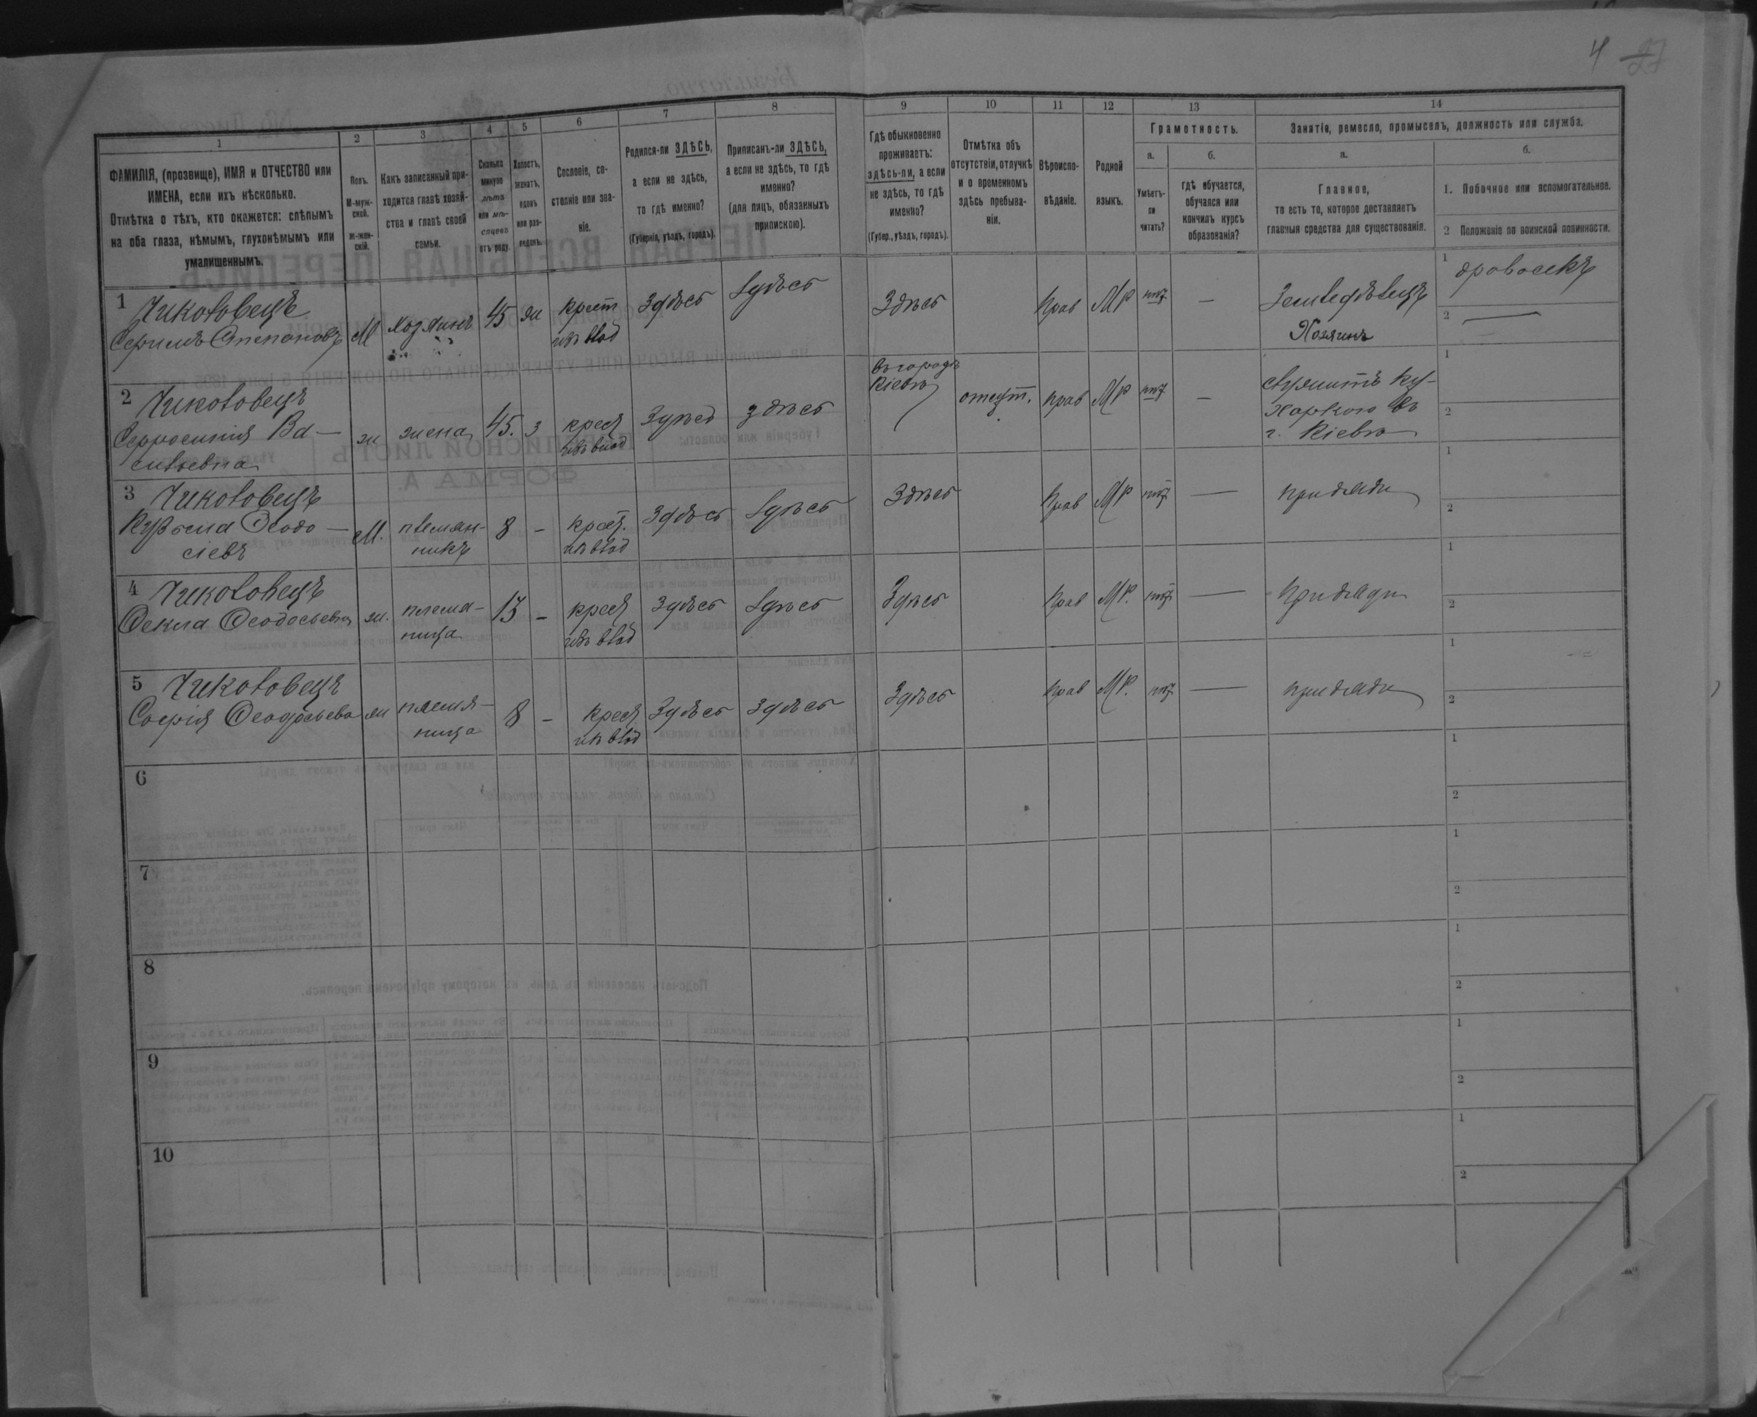 4 27
1 2 3 4 5 6 7 8 9 10 11 12 13 14
ФАМИЛІЯ, (прозвище), ИМЯ и ОТЧЕСТВО или
ИМЕНА, если ихъ нѣсколько.
Отмѣтка о тѣхъ, кто окажется: слѣпымъ
на оба глаза, нѣмымъ, глухонѣмымъ или
умалишеннымъ.
Полъ.
М-муж-
ской.
Ж-жен-
скій.
Какъ записанный при-
ходится главѣ хозяй-
ства и главѣ своей
семьи.
Сколько
минуло
лѣтъ
или мѣ-
сяцевъ
отъ роду.
Холостъ,
женатъ,
вдовъ
или раз-
веденъ.
Сословіе, со-
стояніе или зва-
ніе.
Родился-ли ЗДѢСЬ,
а если не здѣсь,
то гдѣ именно?
(Губернія, уѣздъ, городъ).
Приписанъ-ли ЗДѢСЬ,
а если не здѣсь, то гдѣ
именно?
(для лицъ, обязанныхъ
припискою).
Гдѣ обыкновенно
проживаетъ:
здѣсь-ли, а если
не здѣсь, то гдѣ
именно?
(Губер., уѣздъ, городъ).
Отмѣтка объ
отсутствіи, отлучкѣ
и о временномъ
здѣсь пребыва-
ніи.
Вѣроиспо-
вѣданіе.
Родной
языкъ.
Грамотность.
а.
Умѣетъ-
ли
читать?
б.
гдѣ обучается,
обучался или
кончилъ курсъ
образованія?
Занятія, ремесло, промыселъ, должность или служба.
а.
Главное,
то есть то, которое доставляетъ
главныя средства для существованія.
б.
1. Побочное или вспомогательное.
2 Положеніе по воинской повинности.
1 Чиколовецъ
Сергій Степановъ М хозяинъ 45 ж крест
изъ влад Здѣсь Здѣсь Здѣсь Прав МР нѣт — Земледѣлецъ
Хозяинъ 1 дровосекъ
2 —
2 Чиколовецъ
Ва-
сильевна ж жена 45. з крест
изъ влад Здѣсь здѣсь въ городѣ
Кіевѣ отсут. прав МР нѣт — служитъ ку-
харкою въ
г. Кіевѣ 1
2
3 Чиколовецъ
Кузьма Ѳеодо-
сіевъ М. племян-
никъ 8 - крест.
изъ влад Здѣсь Здѣсь Здѣсь Прав МР нѣт — при дяди 1
2
4 Чиколовецъ
Ѳекла Ѳеодосьевна ж. племя-
ница 13 - крест
изъ влад Здѣсь Здѣсь Здѣсь Прав МР. нѣт — при дяди 1
2
5 Чиколовецъ
Софія Ѳеодосьева ж племя-
ница 8 - крест
изъ влад Здѣсь Здѣсь Здѣсь прав МР. нѣт — при дяди 1
2
6 1
2
7 1
2
8 1
2
9 1
2
10 1
2